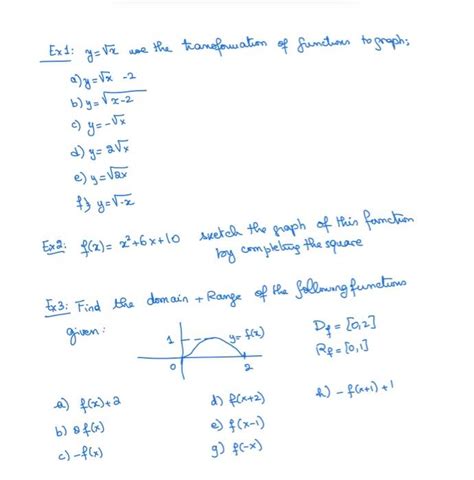 Ex1: y=√x use the transformation of functions to graph:
a) y=√x -2
b) y=√x-2
c) y=-√x
d) y=2√x
e) y=√2x
f) y=√-x
Ex2: f(x)= x²+6x+10 sketch the graph of this function
by completing the square
Ex3: Find the domain + Range of the following functions
given:
1 y=f(x)
0 2
Df = [0,2]
Rf = [0,1]
a) f(x)+2
b) 2f(x)
c) -f(x)
d) f(x+2)
e) f(x-1)
g) f(-x)
h) -f(x+1)+1